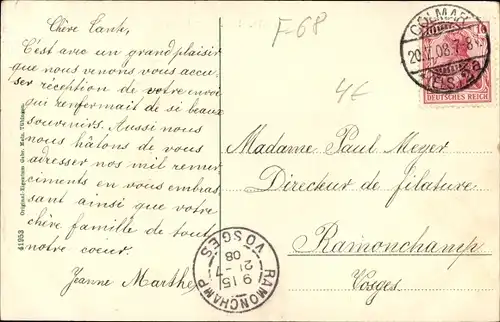 F-68
4€
Chère Tante,
C'est avec un grand plaisir
que nous venons vous accu-
ser réception de votre envoi
qui renfermait de si beaux
souvenirs. Aussi nous
nous hâtons de vous
adresser nos mil remer
ciments en vous embras
sant ainsi que votre
chère famille de tout
notre coeur.
Jeanne Marthe
41953 Original-Eigentum Gebr. Metz, Tübingen.
COLMAR
20. 7-8
(ELS.)
10
DEUTSCHES REICH
Madame Paul Meyer
Directeur de filature
Ramonchamp
Vosges.
RAMONCHAMP
9 15
21 -7
08
VOSGES